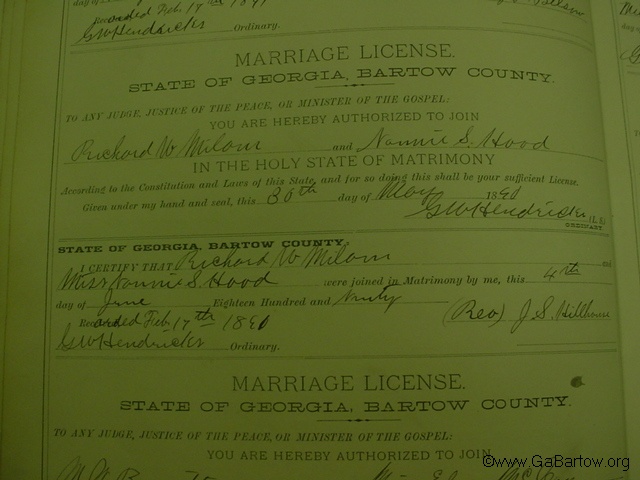 day of
Recorded Feb 17th 1891
GWHendricks Ordinary.
MARRIAGE LICENSE.
STATE OF GEORGIA, BARTOW COUNTY.
TO ANY JUDGE, JUSTICE OF THE PEACE, OR MINISTER OF THE GOSPEL:
YOU ARE HEREBY AUTHORIZED TO JOIN
Richard W Milam and Nannie S. Hood
IN THE HOLY STATE OF MATRIMONY
According to the Constitution and Laws of this State, and for so doing this shall be your sufficient License.
Given under my hand and seal, this 30th day of May 1890
GWHendricks (L.S.)
ORDINARY
STATE OF GEORGIA, BARTOW COUNTY.
I CERTIFY THAT Richard W Milam and
Miss Nannie S. Hood were joined in Matrimony by me, this 4th
day of June Eighteen Hundred and Ninety
Recorded Feb 17th 1891 (Rev) J. S. Hillhouse
GWHendricks Ordinary.
MARRIAGE LICENSE.
STATE OF GEORGIA, BARTOW COUNTY.
TO ANY JUDGE, JUSTICE OF THE PEACE, OR MINISTER OF THE GOSPEL:
YOU ARE HEREBY AUTHORIZED TO JOIN
©www.GaBartow.org